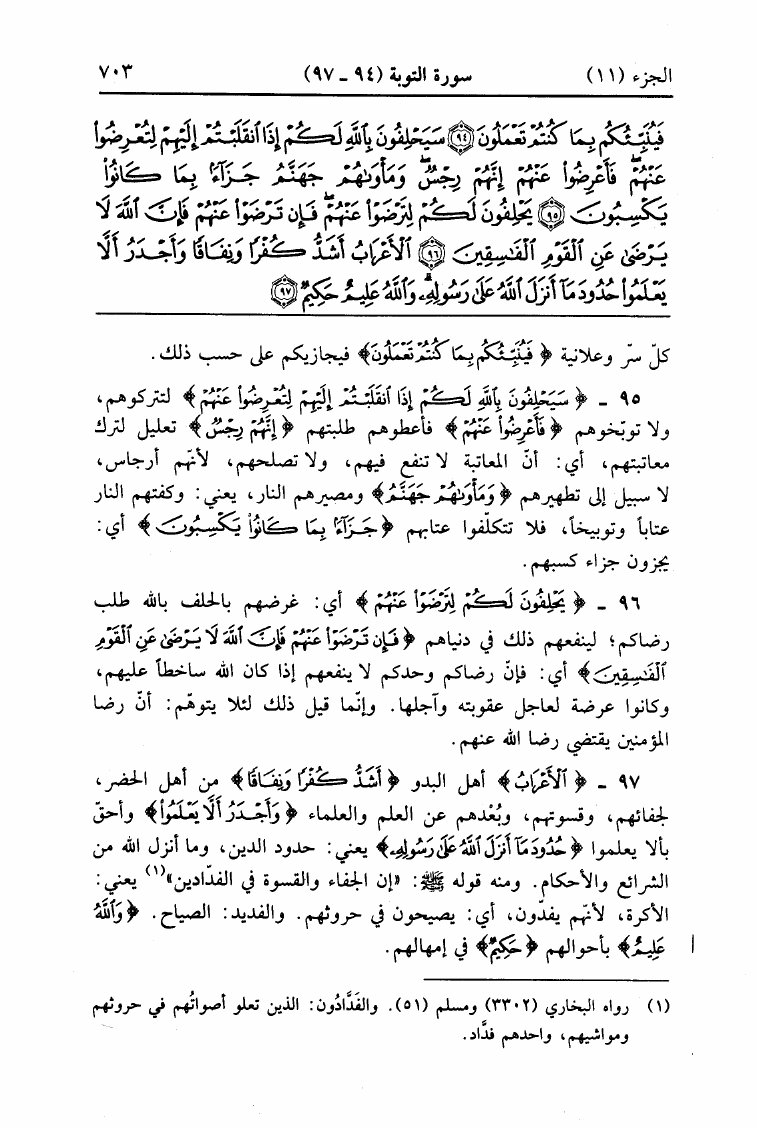 الجزء (١١) سورة التوبة (٩٤ ـ ٩٧) ٧٠٣
فَيُنَبِّئُكُم بِمَا كُنتُمْ تَعْمَلُونَ ﴿٩٤﴾ سَيَحْلِفُونَ بِاللَّهِ لَكُمْ إِذَا انقَلَبْتُمْ إِلَيْهِمْ لِتُعْرِضُوا
عَنْهُمْ ۖ فَأَعْرِضُوا عَنْهُمْ ۖ إِنَّهُمْ رِجْسٌ ۖ وَمَأْوَاهُمْ جَهَنَّمُ جَزَاءً بِمَا كَانُوا
يَكْسِبُونَ ﴿٩٥﴾ يَحْلِفُونَ لَكُمْ لِتَرْضَوْا عَنْهُمْ ۖ فَإِن تَرْضَوْا عَنْهُمْ فَإِنَّ اللَّهَ لَا
يَرْضَىٰ عَنِ الْقَوْمِ الْفَاسِقِينَ ﴿٩٦﴾ الْأَعْرَابُ أَشَدُّ كُفْرًا وَنِفَاقًا وَأَجْدَرُ أَلَّا
يَعْلَمُوا حُدُودَ مَا أَنزَلَ اللَّهُ عَلَىٰ رَسُولِهِ ۗ وَاللَّهُ عَلِيمٌ حَكِيمٌ ﴿٩٧﴾
كلّ سرّ وعلانية ﴿فَيُنَبِّئُكُم بِمَا كُنتُمْ تَعْمَلُونَ﴾ فيجازيكم على حسب ذلك.
٩٥ ـ ﴿سَيَحْلِفُونَ بِاللَّهِ لَكُمْ إِذَا انقَلَبْتُمْ إِلَيْهِمْ لِتُعْرِضُوا عَنْهُمْ﴾ لتتركوهم،
ولا توبّخوهم ﴿فَأَعْرِضُوا عَنْهُمْ﴾ فأعطوهم طلبتهم ﴿إِنَّهُمْ رِجْسٌ﴾ تعليل لترك
معاتبتهم، أي: أنّ المعاتبة لا تنفع فيهم، ولا تصلحهم، لأنهم أرجاس،
لا سبيل إلى تطهيرهم ﴿وَمَأْوَاهُمْ جَهَنَّمُ﴾ ومصيرهم النار، يعني: وكفتهم النار
عتاباً وتوبيخاً، فلا تتكلّفوا عتابهم ﴿جَزَاءً بِمَا كَانُوا يَكْسِبُونَ﴾ أي:
يجزون جزاء كسبهم.
٩٦ ـ ﴿يَحْلِفُونَ لَكُمْ لِتَرْضَوْا عَنْهُمْ﴾ أي: غرضهم بالحلف بالله طلب
رضاكم؛ لينفعهم ذلك في دنياهم ﴿فَإِن تَرْضَوْا عَنْهُمْ فَإِنَّ اللَّهَ لَا يَرْضَىٰ عَنِ الْقَوْمِ
الْفَاسِقِينَ﴾ أي: فإنّ رضاكم وحدكم لا ينفعهم إذا كان الله ساخطاً عليهم،
وكانوا عرضة لعاجل عقوبته وآجلها. وإنّما قيل ذلك لئلا يتوهّم: أنّ رضا
المؤمنين يقتضي رضا الله عنهم.
٩٧ ـ ﴿الْأَعْرَابُ﴾ أهل البدو ﴿أَشَدُّ كُفْرًا وَنِفَاقًا﴾ من أهل الحضر،
لجفائهم، وقسوتهم، وبُعْدهم عن العلم والعلماء ﴿وَأَجْدَرُ أَلَّا يَعْلَمُوا﴾ وأحقّ
بألا يعلموا ﴿حُدُودَ مَا أَنزَلَ اللَّهُ عَلَىٰ رَسُولِهِ﴾ يعني: حدود الدين، وما أنزل الله من
الشرائع والأحكام. ومنه قوله ﷺ: «إن الجفاء والقسوة في الفدّادين»(١) يعني:
الأكرة، لأنهم يفدّون، أي: يصيحون في حروثهم. والفديد: الصياح. ﴿وَاللَّهُ
عَلِيمٌ﴾ بأحوالهم ﴿حَكِيمٌ﴾ في إمهالهم.
(١) رواه البخاري (٣٣٠٢) ومسلم (٥١). والفَدَّادُون: الذين تعلو أصواتُهم في حروثهم
ومواشيهم، واحدهم فدَّاد.